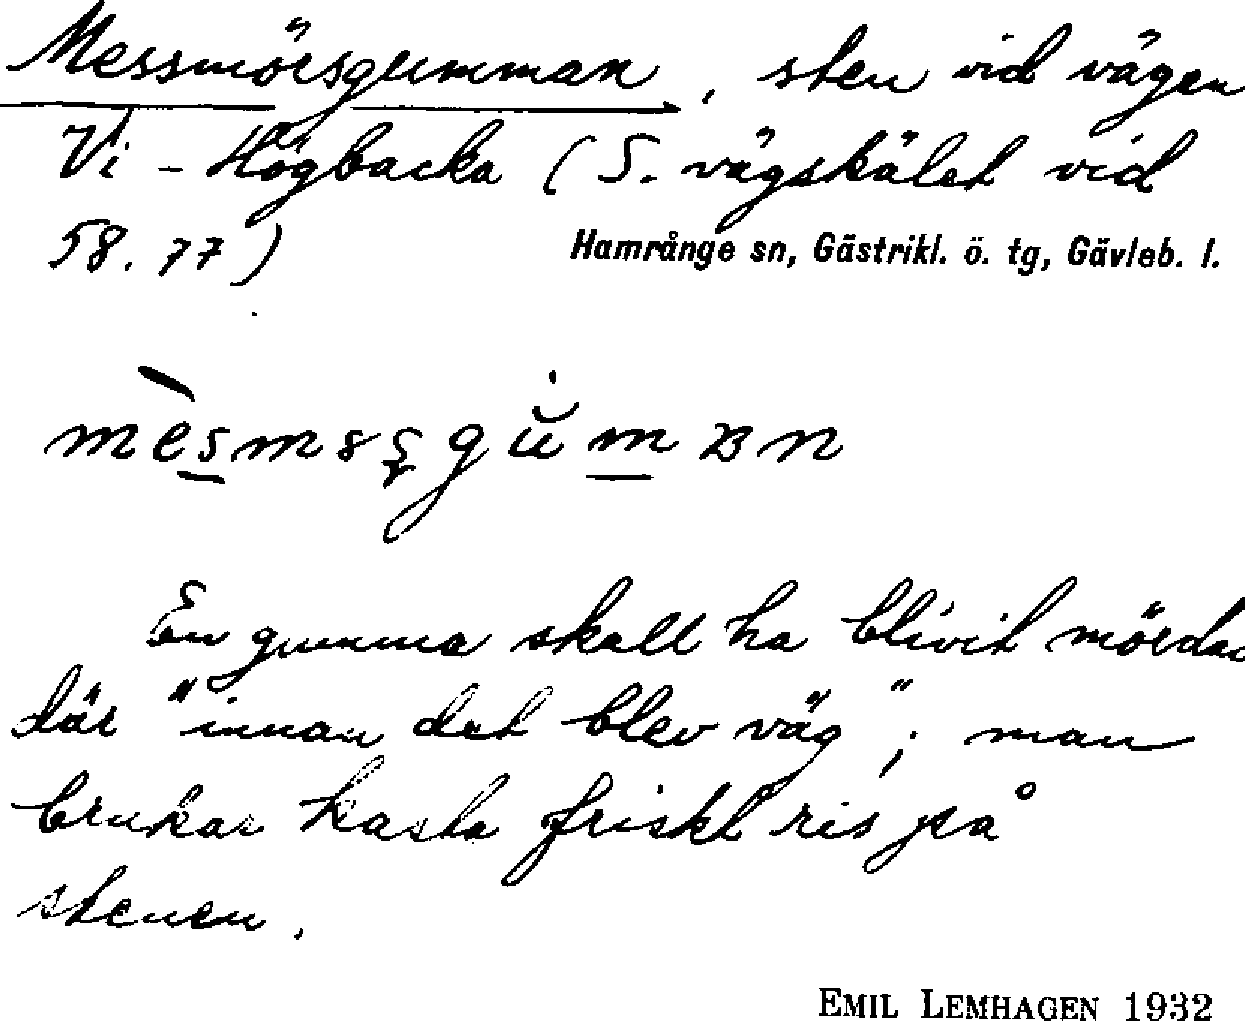 Messmörsgumman, sten vid vägen
Vi - Högbacka (S. vägskälet vid
58.77)
Hamrånge sn, Gästrikl. ö. tg, Gävleb. l.
En gumma skall ha blivit mördad
där "innan det blev väg"; man
brukar kasta friskt ris på
stenen.
EMIL LEMHAGEN 1932